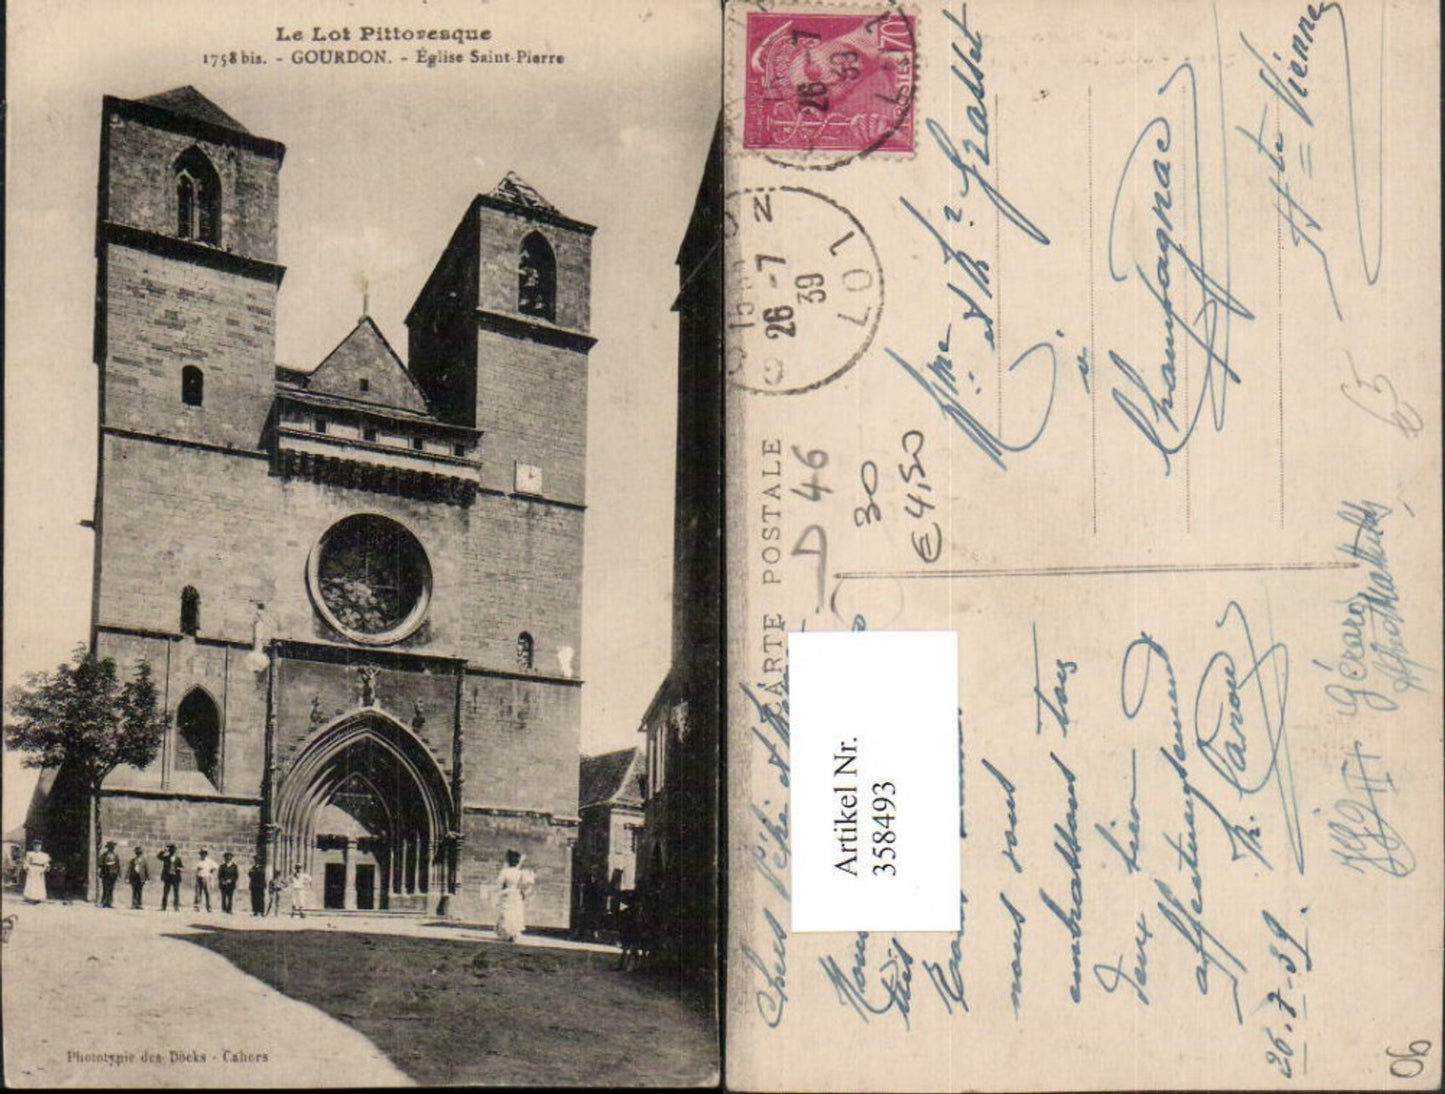 Le Lot Pittoresque
1758 bis. - GOURDON. - Église Saint-Pierre
Phototypie des Docks - Cahors
70
POSTES
26 -7
39
LOT
26 -7
39
LOT
CARTE POSTALE
D 46
30
€ 4,50
Mme et Mr Grasset
à
Champagnac
Hte Vienne
Artikel Nr.
358493
nous vous
embrassons tous
deux bien
affectueusement
26.7.39.
Gérard